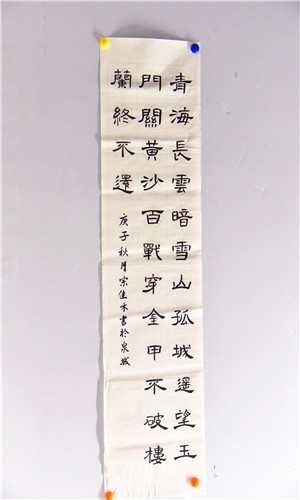 青海長雲暗雪山孤城遥望玉
門關黄沙百戰穿金甲不破樓
蘭終不還
庚子秋月宗佳木書於泉城